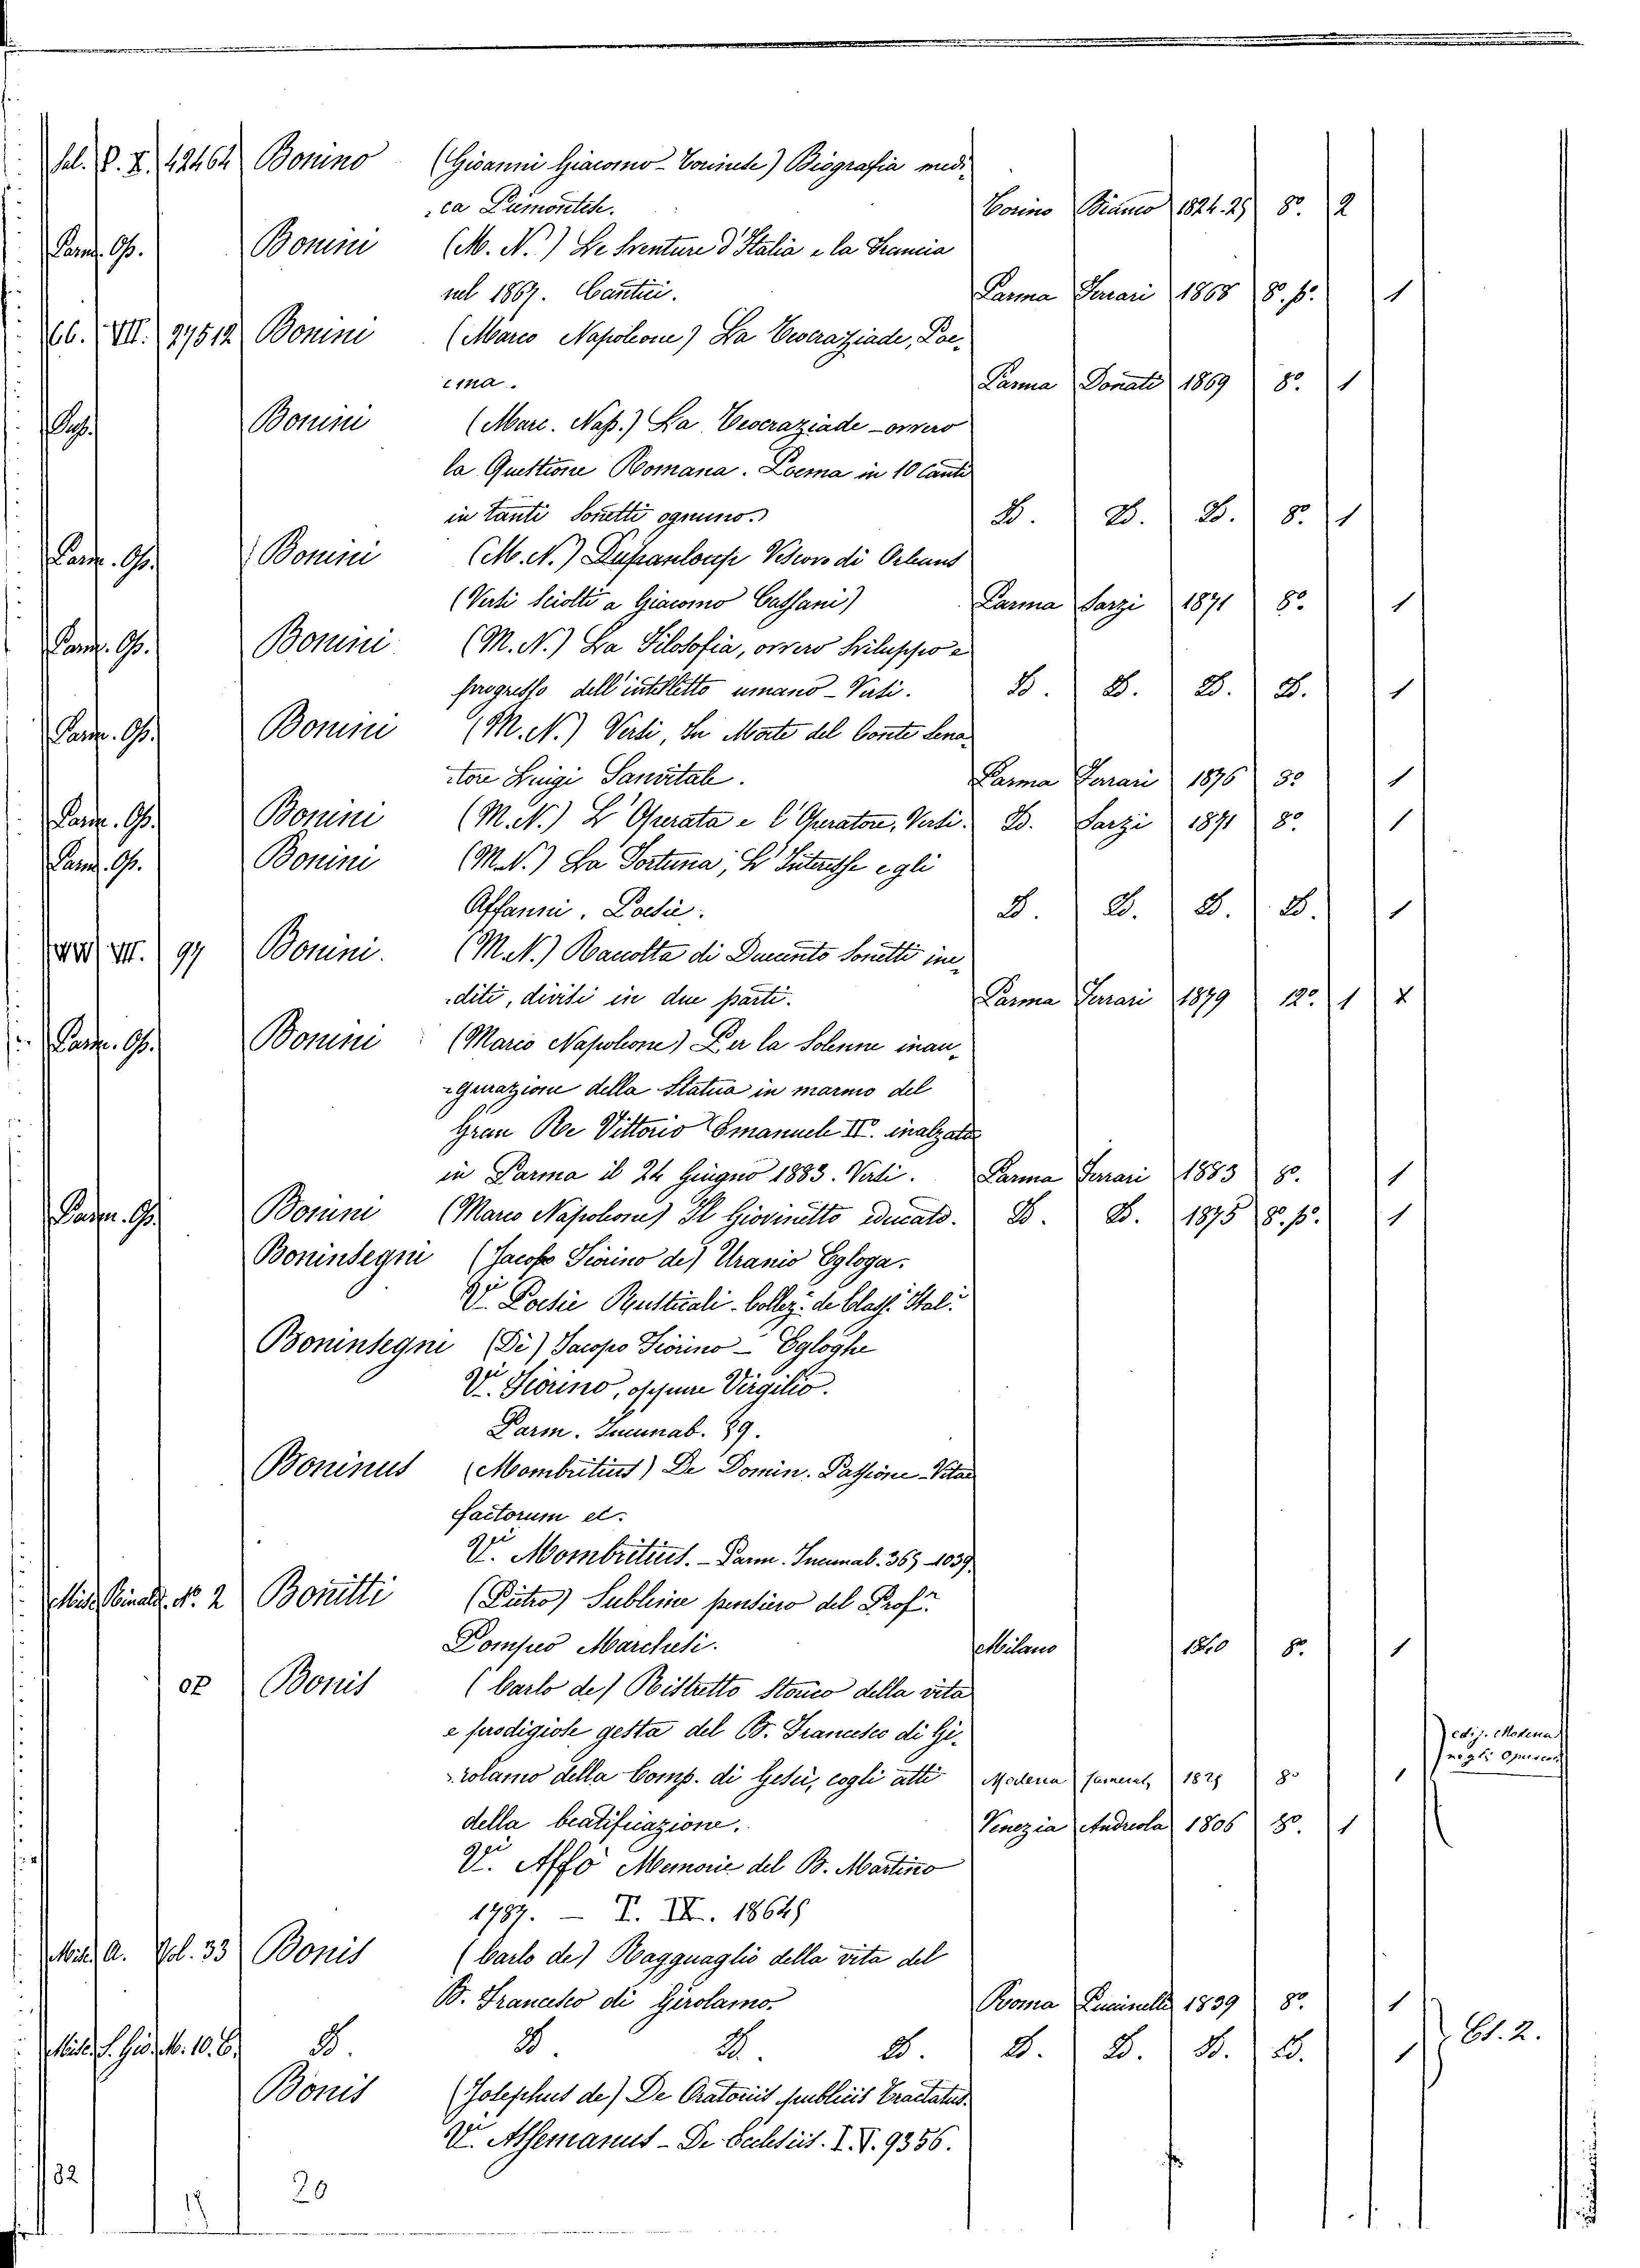 Sal. P. X. 42464 Bonino (Giovanni Giacomo - Torinese) Biografia medi-
ca Piemontese. Torino Bianco 1824.25 8.º 2
Parm. Op. Bonini (M. N.) Le Sventure d'Italia e la Francia
nel 1867. Cantici. Parma Ferrari 1868 8.º p.º 1
66. VII. 27512 Bonini (Marco Napoleone) La Teocraziade, Poe-
ma. Parma Donati 1869 8.º 1
Op. Bonini (Marc. Nap.) La Teocraziade - ovvero
la Questione Romana. Poema in 10 Canti
in tanti Sonetti ognuno. D. D. D. 8.º 1
Parm. Op. Bonini (M. N.) Dupanloup Vescovo di Orleans
(Versi sciolti a Giacomo Cassani) Parma Sarzi 1871 8.º 1
Parm. Op. Bonini (M. N.) La Filosofia, ovvero Sviluppo e
progresso dell'intelletto umano - Versi. D. D. D. D. 1
Parm. Op. Bonini (M. N.) Versi, In Morte del Conte Sena-
tore Luigi Sanvitale. Parma Ferrari 1876 8.º 1
Parm. Op. Bonini (M. N.) L'Operata e l'Operatore, Versi. D. Sarzi 1871 8.º 1
Parm. Op. Bonini (M. N.) La Fortuna, L'Interesse e gli
Affanni. Poesie. D. D. D. D. 1
VII. 97 Bonini. (M. N.) Raccolta di Duecento Sonetti ine-
diti, divisi in due parti. Parma Ferrari 1879 12.º 1 X
Parm. Op. Bonini (Marco Napoleone) Per la Solenne inau-
gurazione della Statua in marmo del
Gran Re Vittorio Emanuele II. inalzata
in Parma il 24 Giugno 1883. Versi. Parma Ferrari 1883 8.º 1
Parm. Op. Bonini (Marco Napoleone) Il Giovinetto educato. D. D. 1875 8.º p.º 1
Boninsegni (Jacopo Fiorino de) Uranio Egloga.
V.i Poesie Rusticali - Collez.e de Class. Ital.i
Boninsegni (Di) Jacopo Fiorino - Egloghe
V.i Fiorino, oppure Virgilio.
Parm. Incunab. 89.
Boninus (Mombritius) De Domin. Passione - Vitae
Sactorum et.
V.i Mombritius. - Parm. Incunab. 365 - 1039.
Misc. Rinald. N.º 2 Bonitti (Pietro) Sublime pensiero del Prof.r
Pompeo Marchesi. Milano 1840 8.º 1
Bonis (Carlo de) Ristretto Storico della vita
e prodigiose gesta del B. Francesco di Gi-
rolamo della Comp. di Gesù, cogli atti Modena 1829 8.º 1 ediz. Modena
negli
della beatificazione. Venezia Andreola 1806 8.º 1
V.i Affò Memorie del B. Martino
1787. - T. IX. 18648
Misc. A. Vol. 33 Bonis (Carlo de) Ragguaglio della vita del
B. Francesco di Girolamo. Roma Puccinelli 1839 8.º 1
D. D. D. D. D. D. D. D. 1 Es. 2.
Bonis (Josephus de) De Oratoriis publicis Tractatus.
V.i Assemanus - De Ecclesiis. I. V. 9356.
82
17 20